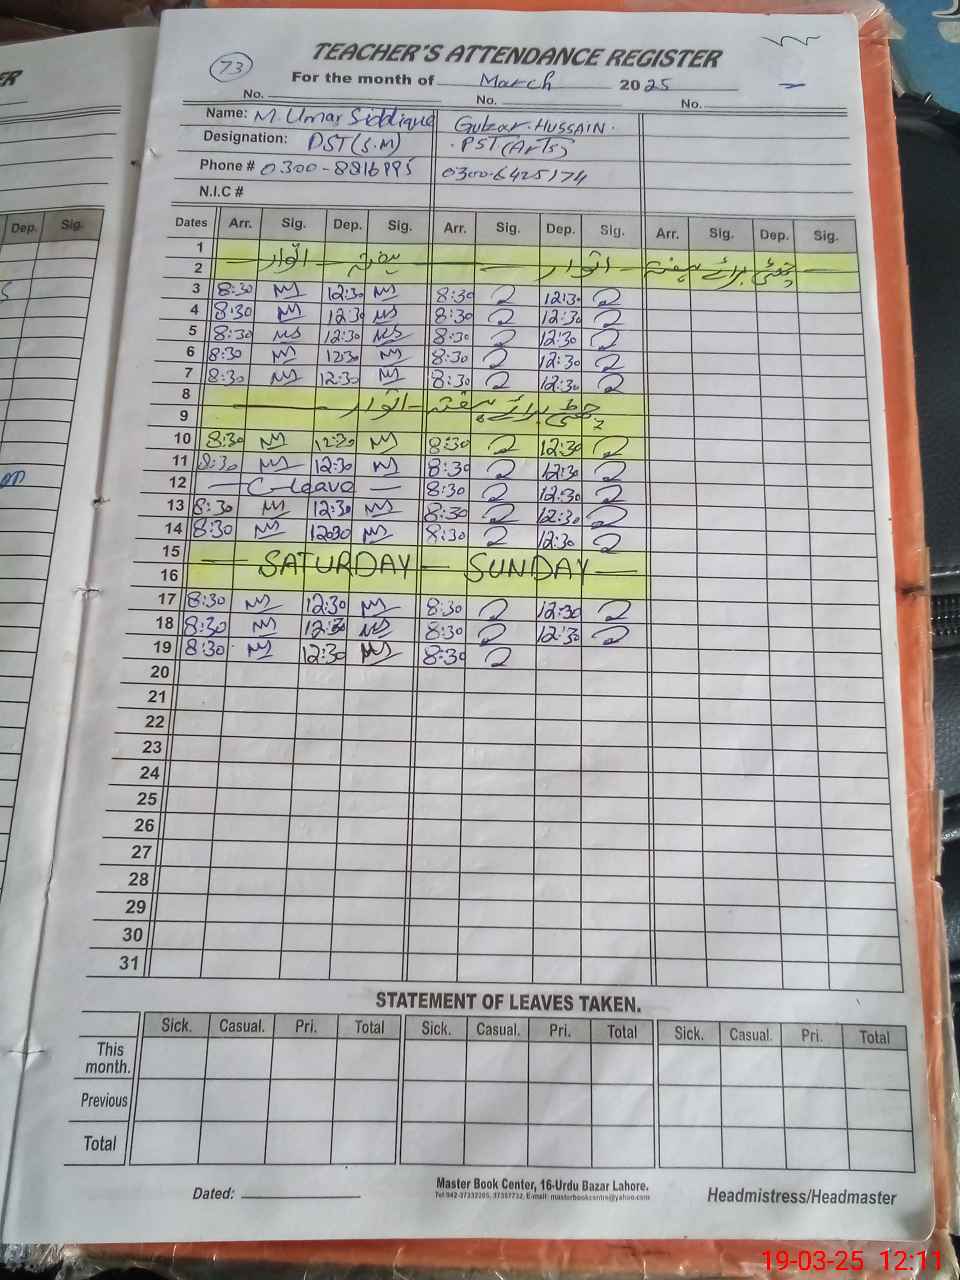 TEACHER'S ATTENDANCE REGISTER
73
For the month of March 2025
No. No. No.
Name: M. Umar Siddique Gulzar HUSSAIN.
Designation: PST(S.M) PST(Arts)
Phone # 0300-8816995 0300-6425174
N.I.C #
Dep. Sig.
Dates Arr. Sig. Dep. Sig. Arr. Sig. Dep. Sig. Arr. Sig. Dep. Sig.
1
2 ہفتہ اتوار
3 8:30 12:30 8:30 12:30
4 8:30 12:30 8:30 12:30
5 8:30 12:30 8:30 12:30
6 8:30 12:30 8:30 12:30
7 8:30 12:30 8:30 12:30
8
9 چھٹی برائے ہفتہ اتوار
10 8:30 12:30 8:30 12:30
11 8:30 12:30 8:30 12:30
12 C-leave 8:30 12:30
13 8:30 12:30 8:30 12:30
14 8:30 1230 8:30 12:30
15
16 SATURDAY SUNDAY
17 8:30 12:30 8:30 12:30
18 8:30 12:30 8:30 12:30
19 8:30 12:30 8:30
20
21
22
23
24
25
26
27
28
29
30
31
STATEMENT OF LEAVES TAKEN.
Sick. Casual. Pri. Total Sick. Casual. Pri. Total Sick. Casual. Pri. Total
This month.
Previous
Total
Dated:
Master Book Center, 16-Urdu Bazar Lahore.
Headmistress/Headmaster
19-03-25 12:11